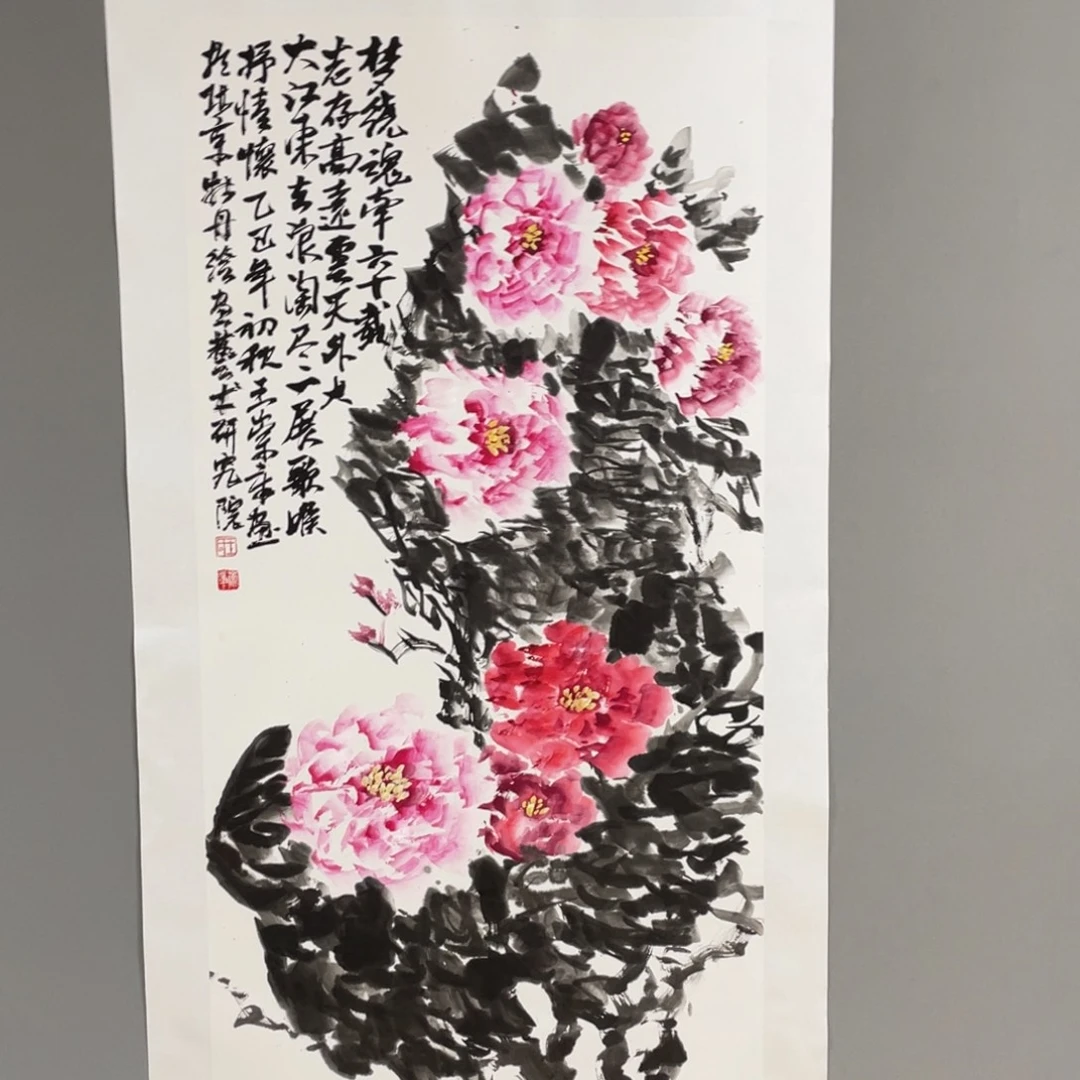 梦绕魂牵六十载
志存高远云天外大
大江东去浪淘尽一展歌喉
抒情怀乙巳年初秋王荣章画
于北京牡丹绘画艺术研究院